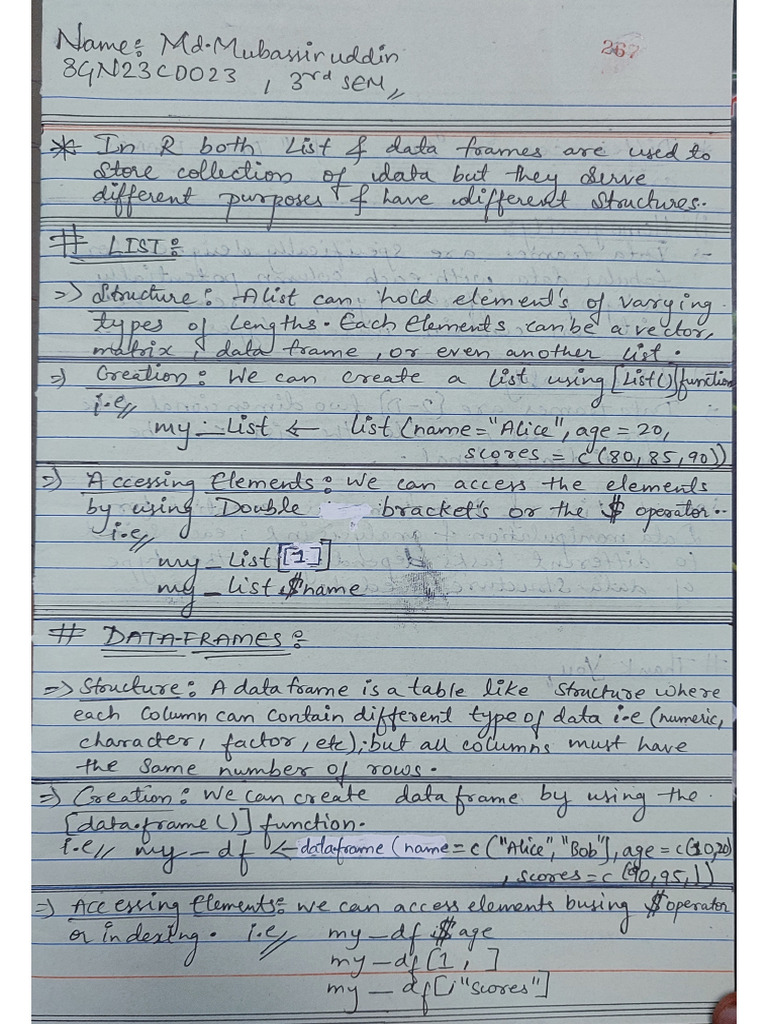 Name: Md.Mubassiruddin
267
3GN23CD023, 3rd SEM,,
* In R both List & data frames are used to
store collection of data but they serve
different purposes & have different structures.
# LIST:
=> Structure: A list can hold element's of varying
types of Lengths. Each Elements can be a vector,
matrix, data frame, or even another list.
=> Creation: We can create a list using [List()] function
i.e,,
my_List <- list (name="Alice", age = 20,
scores = c(80,85,90))
=> Accessing Elements: We can access the elements
by using Double bracket's or the $ operator.
i.e,,
my_List [[1]]
my_List $name
# DATA-FRAMES:
=> Structure: A data frame is a table like structure where
each column can contain different type of data i.e (numeric,
character, factor, etc), but all columns must have
the same number of rows.
=> Creation: We can create data frame by using the
[data.frame()] function.
i.e,, my_df <- dataframe (name = c("Alice","Bob"), age = c(10,20)
, scores=c(90,95,))
=> Accessing Elements: We can access elements busing $ operator
or indexing. i.e,, my_df $age
my_df [1, ]
my_df [,"scores"]